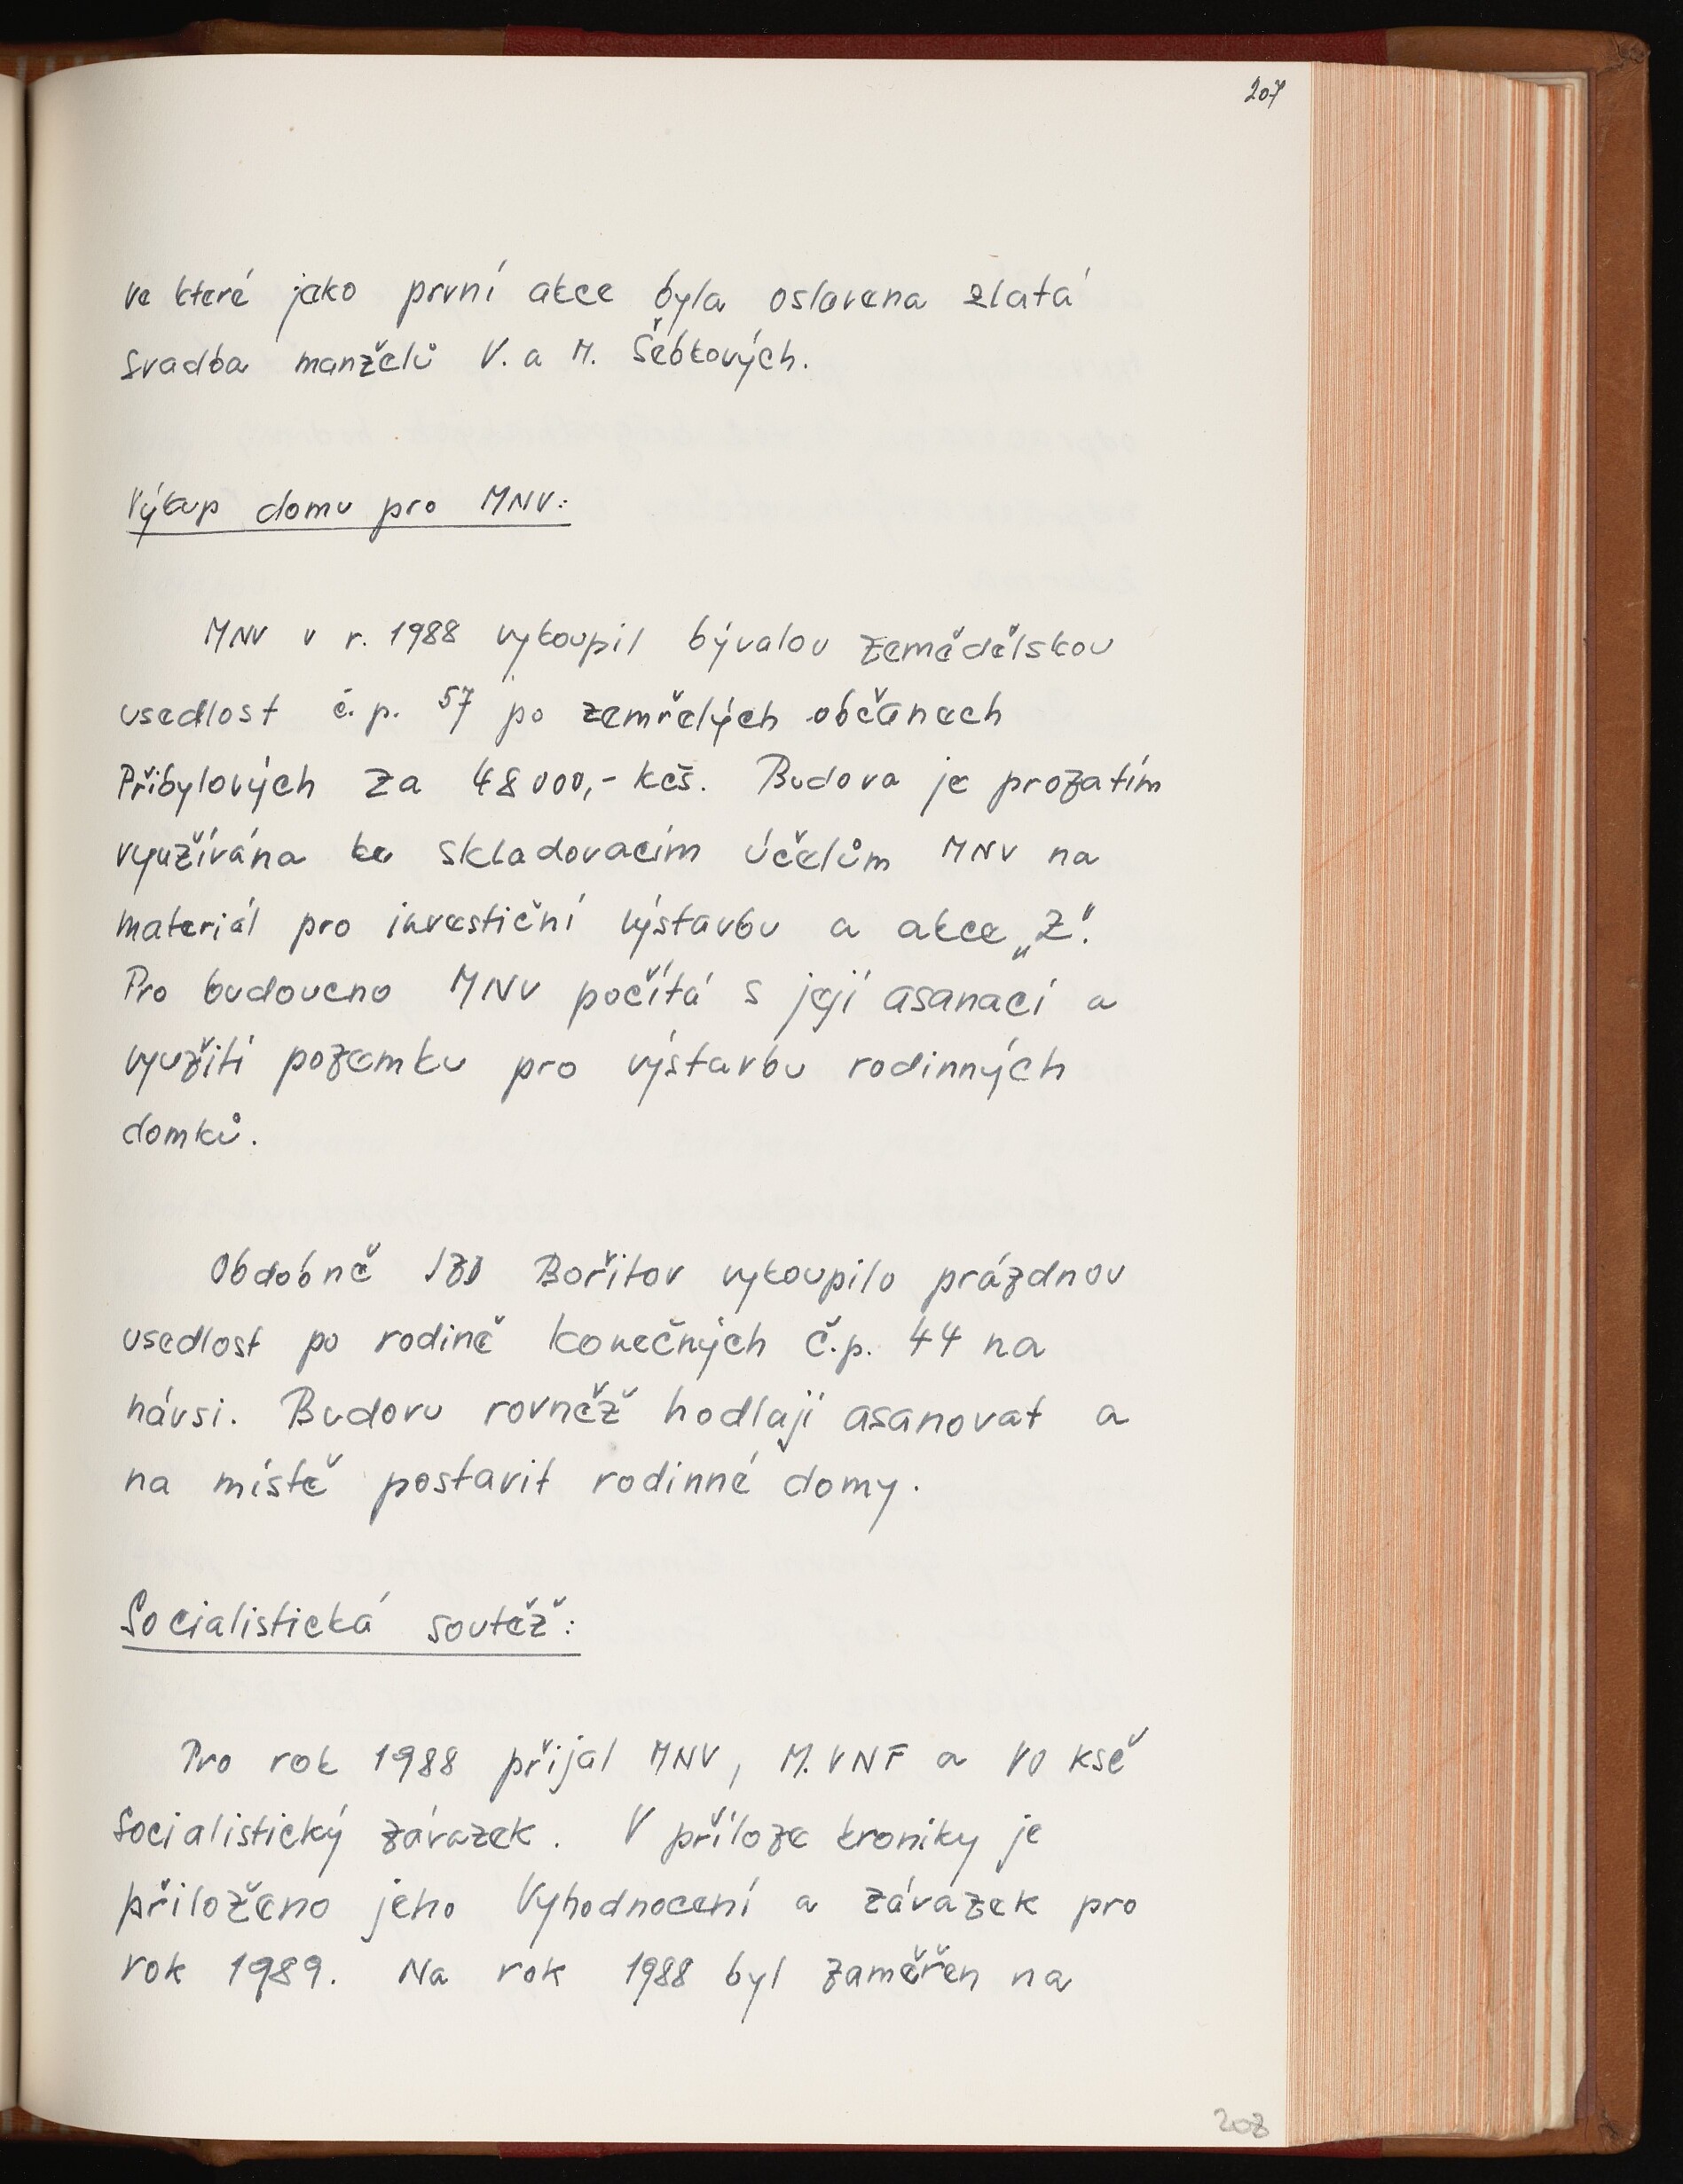 207
ve které jako první akce byla oslavena zlatá
svadba manželů V. a M. Šebkových.
Výkup domu pro MNV:
MNV v r. 1988 vykoupil bývalou zemědělskou
usedlost č.p. 57 po zemřelých občanech
Přibylových za 48 000,- kčs. Budova je prozatím
využívána ke skladovacím účelům MNV na
materiál pro investiční výstavbu a akce „Z“.
Pro budoucno MNV počítá s její asanací a
využití pozemku pro výstavbu rodinných
domků.
Obdobně JZD Bořitov vykoupilo prázdnou
usedlost po rodině Konečných č.p. 44 na
návsi. Budovu rovněž hodlají asanovat a
na místě postavit rodinné domy.
Socialistická soutěž:
Pro rok 1988 přijal MNV, M.VNF a VO KSČ
Socialistický závazek. V příloze kroniky je
přiloženo jeho Vyhodnocení a závazek pro
rok 1989. Na rok 1988 byl zaměřen na
208